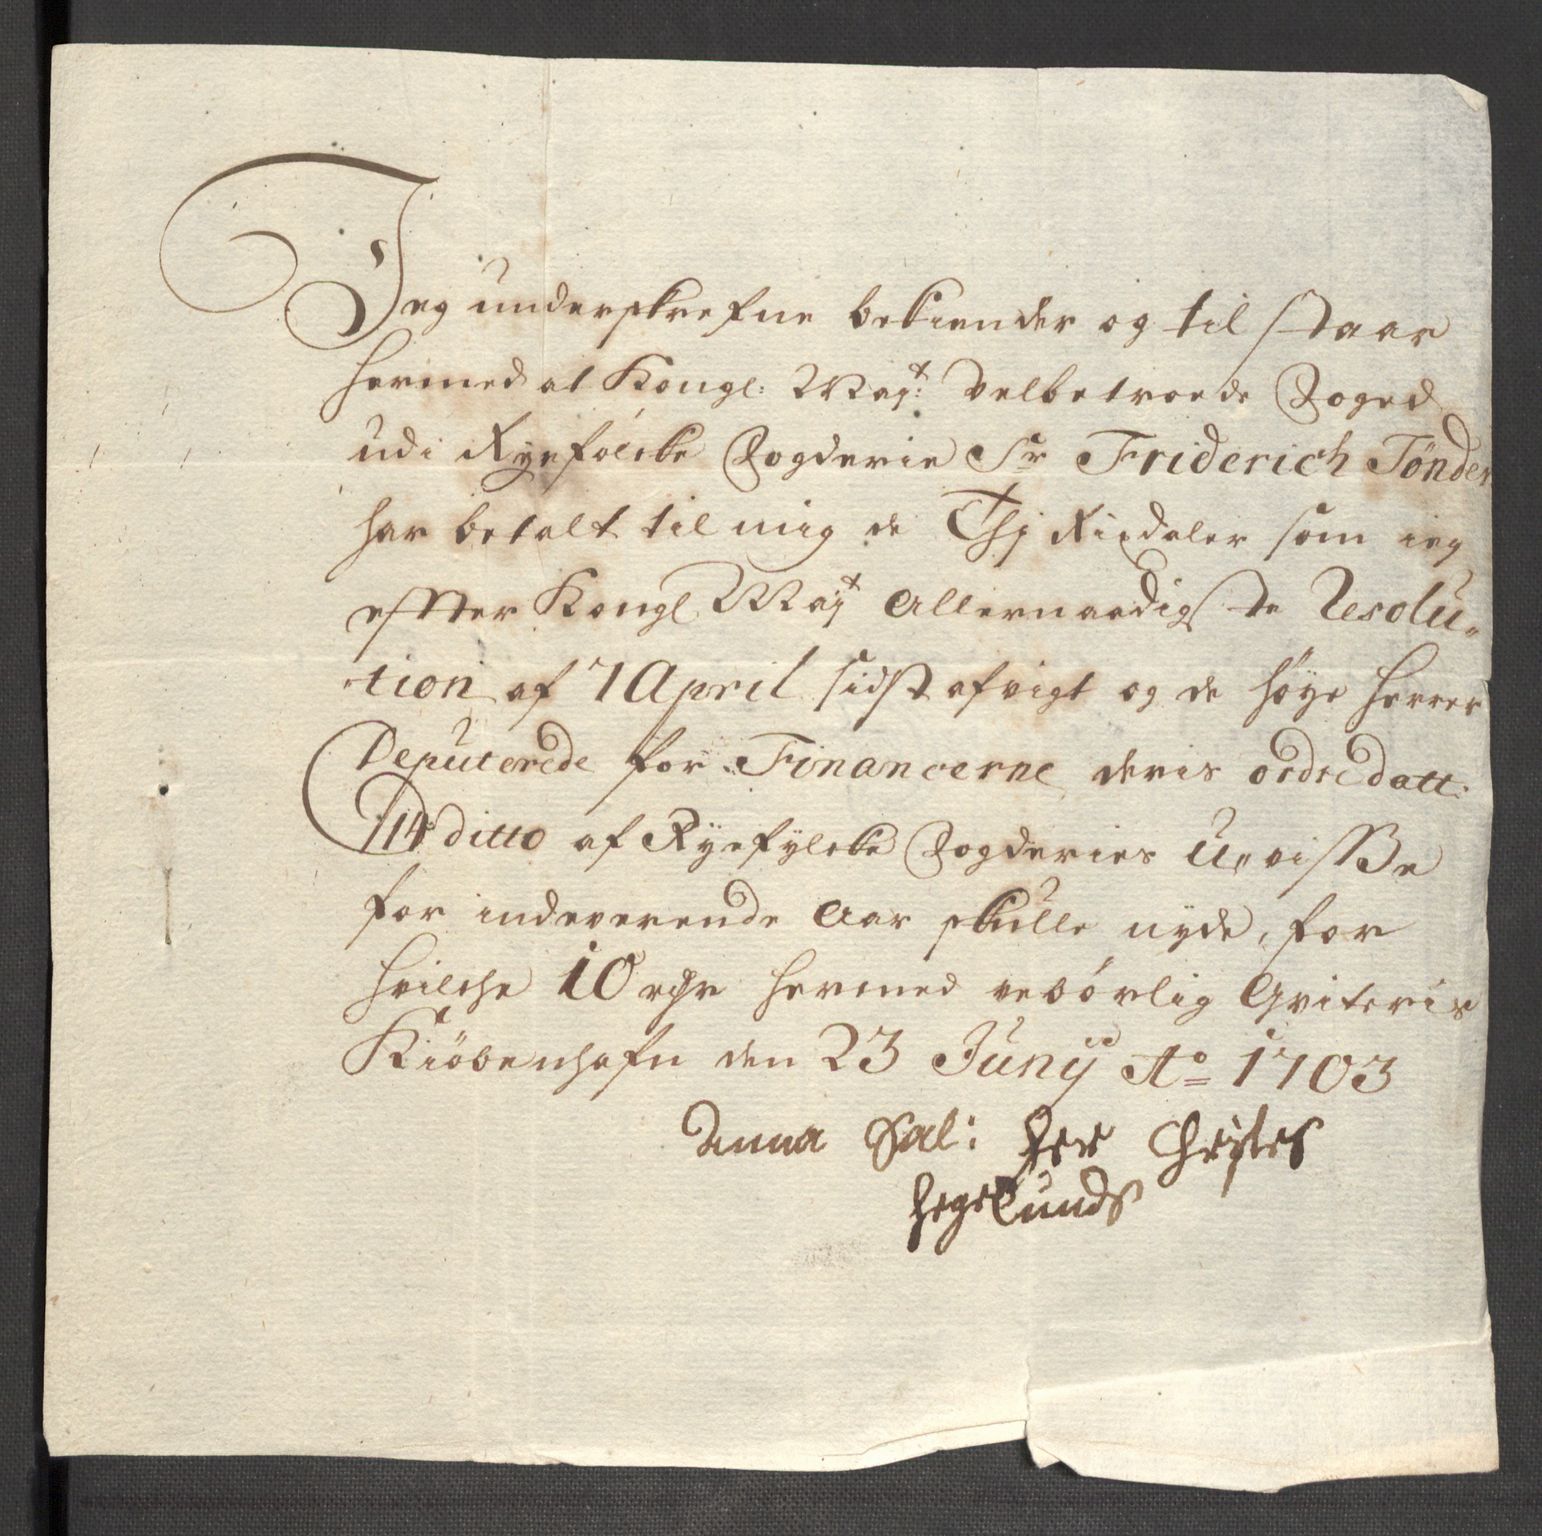 Jeg underskrefne bekiender og til staar
hermed at Kongl: Mayt: Velbetroede Foged
udi Ryefölcke Fogderie Sr Friderich Tönder
har betalt til mig de Thj Rixdaler som ieg
effter Kongl Mayt Allernaadigste Resolu-
tion af 7 April sidst afvigt og de høye Herrer
Deputerede for Financerne deris ordre datt:
14 ditto af Ryefylcke Fogderies U-visse
for indeverende Aar skulle nyde, for
hvilche 10 rdr hermed vebörlig Qviteris
Kiöbenhafn den 23 Junij Ao 1703
Anna Sal: Her Christes
Hegelunds